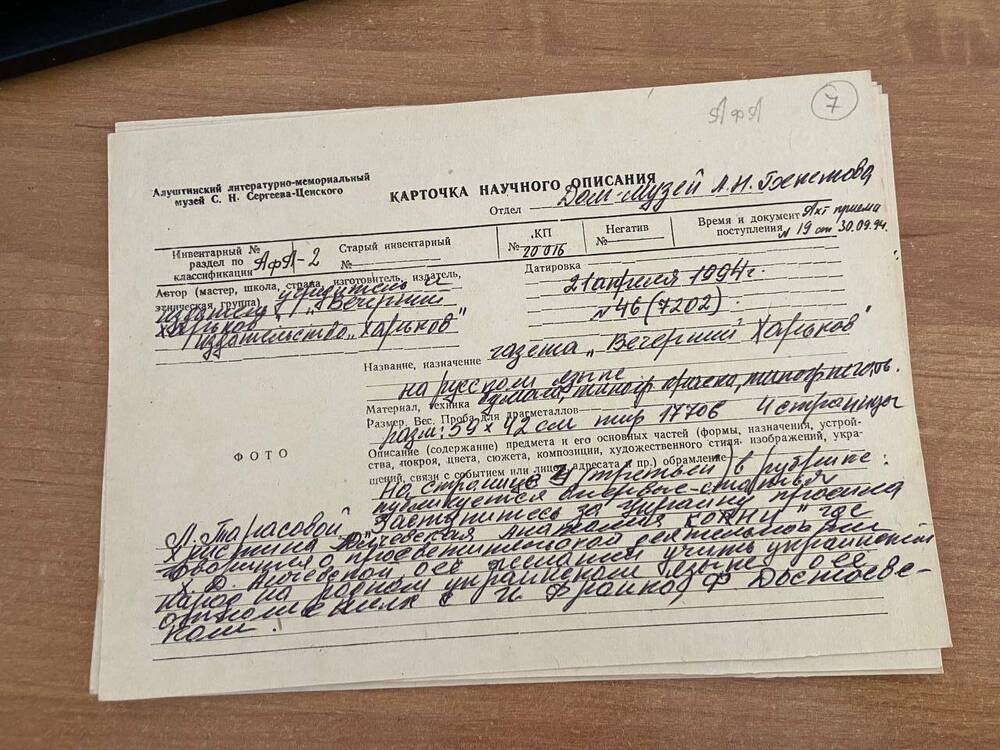 АфЛ
7
Алуштинский литературно-мемориальный
музей С. Н. Сергеева-Ценского
КАРТОЧКА НАУЧНОГО ОПИСАНИЯ
Отдел Дом-музей А.Н. Бекетова
Инвентарный №
раздел по
классификации АфЛ-2
Старый инвентарный
№
КП
№ 20016
Негатив
№
Время и документ Акт приема
поступления № 19 от 30.09.94.
Автор (мастер, школа, страна, изготовитель, издатель,
этническая, группа) учредитель и
издатель: "Вечерний
Харьков"
издательство "Харьков"
Датировка
21 апреля 1994 г.
№ 46 (7202)
Название, назначение газета "Вечерний Харьков"
на русском языке
Материал, техника бумага, типогр краска,
Размер. Вес. Проба для драгметаллов
разм: 59 х 42 см тир 17706 4 страницы
Описание (содержание) предмета и его основных частей (формы, назначения, устрой-
ства, покроя, цвета, сюжета, композиции, художественного стиля изображений, укра-
шений, связи с событием или лицом, адресата и пр.) обрамление
ФОТО
На странице (третьей) в рубрике:
публикуется впервые-статья
Л. Тарасовой "Заступитесь за Украину просила
Христина Алчевская Анатолия" где
говорится о просветительской деятельности
Х. Д. Алчевской о её желании учить украинский
народ на родном украинском языке о её
отношениях к И. Франко, Ф. Достоевс-
ком.